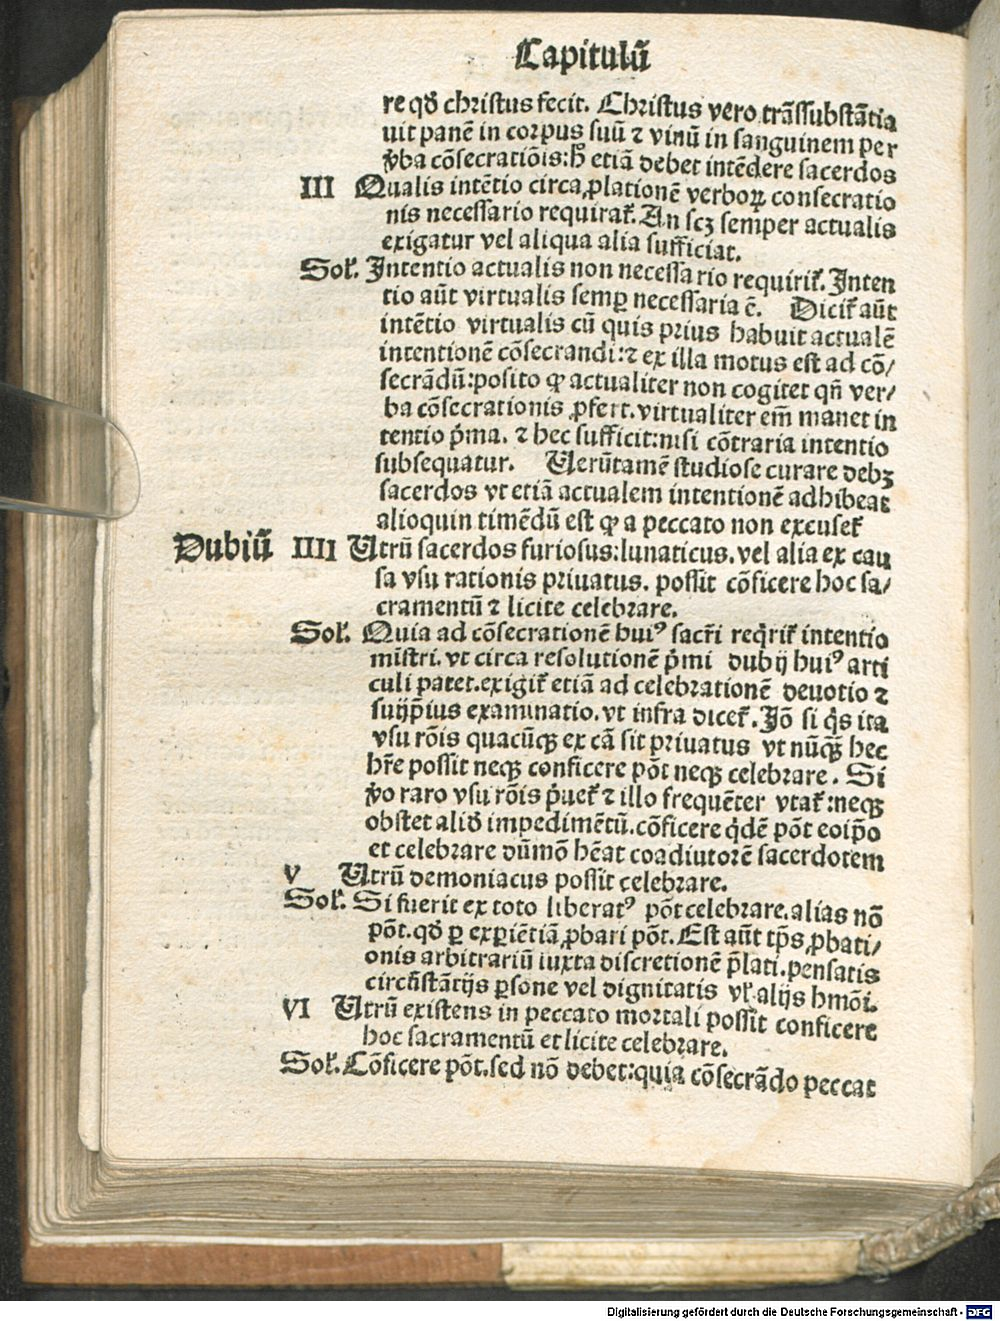 Capitulũ
re qđ christus fecit. Christus vero trãssubstãtia
uit panẽ in corpus suũ ⁊ vinũ in sanguinem per
ỽba cõsecratiõis: hͦ etiã debet intẽdere sacerdos
III Qualis intẽtio circa ꝓlationẽ verboꝝ consecratio
nis necessario requiratͬ. An scꝫ semper actualis
exigatur vel aliqua alia sufficiat.
Solͬ. Intentio actualis non necessario requiritͬ. Inten
tio aũt virtualis semꝑ necessaria ẽ. Dicitͬ aũt
intẽtio virtualis cũ quis prius habuit actualẽ
intentionẽ cõsecrandi: ⁊ ex illa motus est ad cõ/
secrãdũ: posito ꝙ actualiter non cogitet qñ ver/
ba cõsecrationis ꝓfert. virtualiter em̃ manet in
tentio p̃ma. ⁊ hec sufficit: nisi cõtraria intentio
subsequatur. Uerũtamẽ studiose curare debꝫ
sacerdos vt etiã actualem intentionẽ adhibeat
alioquin timẽdũ est ꝙ a peccato non excusetͬ
Dubiũ IIII Utrũ sacerdos furiosus: lunaticus. vel alia ex cau
sa vsu rationis priuatus. possit cõficere hoc sa/
cramentũ ⁊ licite celebrare.
Solͬ. Quia ad cõsecrationẽ huiꝰ sacr̃i req̃ritͬ intentio
mĩstri. vt circa resolutionẽ p̃mi dubij huiꝰ arti
culi patet. exigitͬ etiã ad celebrationẽ deuotio ⁊
suijp̃ius examinatio. vt infra dicetͬ. Iõ si q̃s ita
vsu rõis quacũqꝫ ex cã sit priuatus vt nũq̃ꝫ hec
hr̃e possit neqꝫ conficere põt neqꝫ celebrare. Si
ỽo raro vsu rõis p̃uetͬ ⁊ illo frequẽter vtatͬ: neqꝫ
obstet aliđ impedimẽtũ. cõficere q̃dẽ põt eoip̃o
et celebrare dũmõ hẽat coadiutorẽ sacerdotem
V Utrũ demoniacus possit celebrare.
Solͬ. Si fuerit ex toto liberatꝰ põt celebrare. alias nõ
põt. qđ ꝑ exꝑiẽtiã ꝓbari põt. Est aũt tp̃s ꝓbati/
onis arbitrariũ iuxta discretionẽ p̃lati. pensatis
circũstãtijs ꝑsone vel dignitatis vlͬ alijs hmõi.
VI Utrũ existens in peccato mortali possit conficere
hoc sacramentũ et licite celebrare.
Solͬ. Cõficere põt. sed nõ debet: quia cõsecrãdo peccat
Digitalisierung gefördert durch die Deutsche Forschungsgemeinschaft - DFG